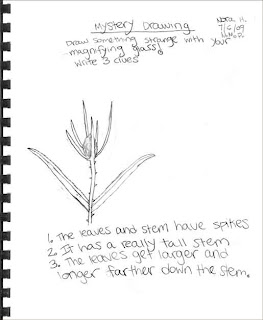 Mystery Drawing
Nora H.
7/6/09
Draw something strange with your
magnifying glass!
Write 3 clues
1. The leaves and stem have spikes
2. It has a really tall stem
3. The leaves get larger and
longer farther down the stem.